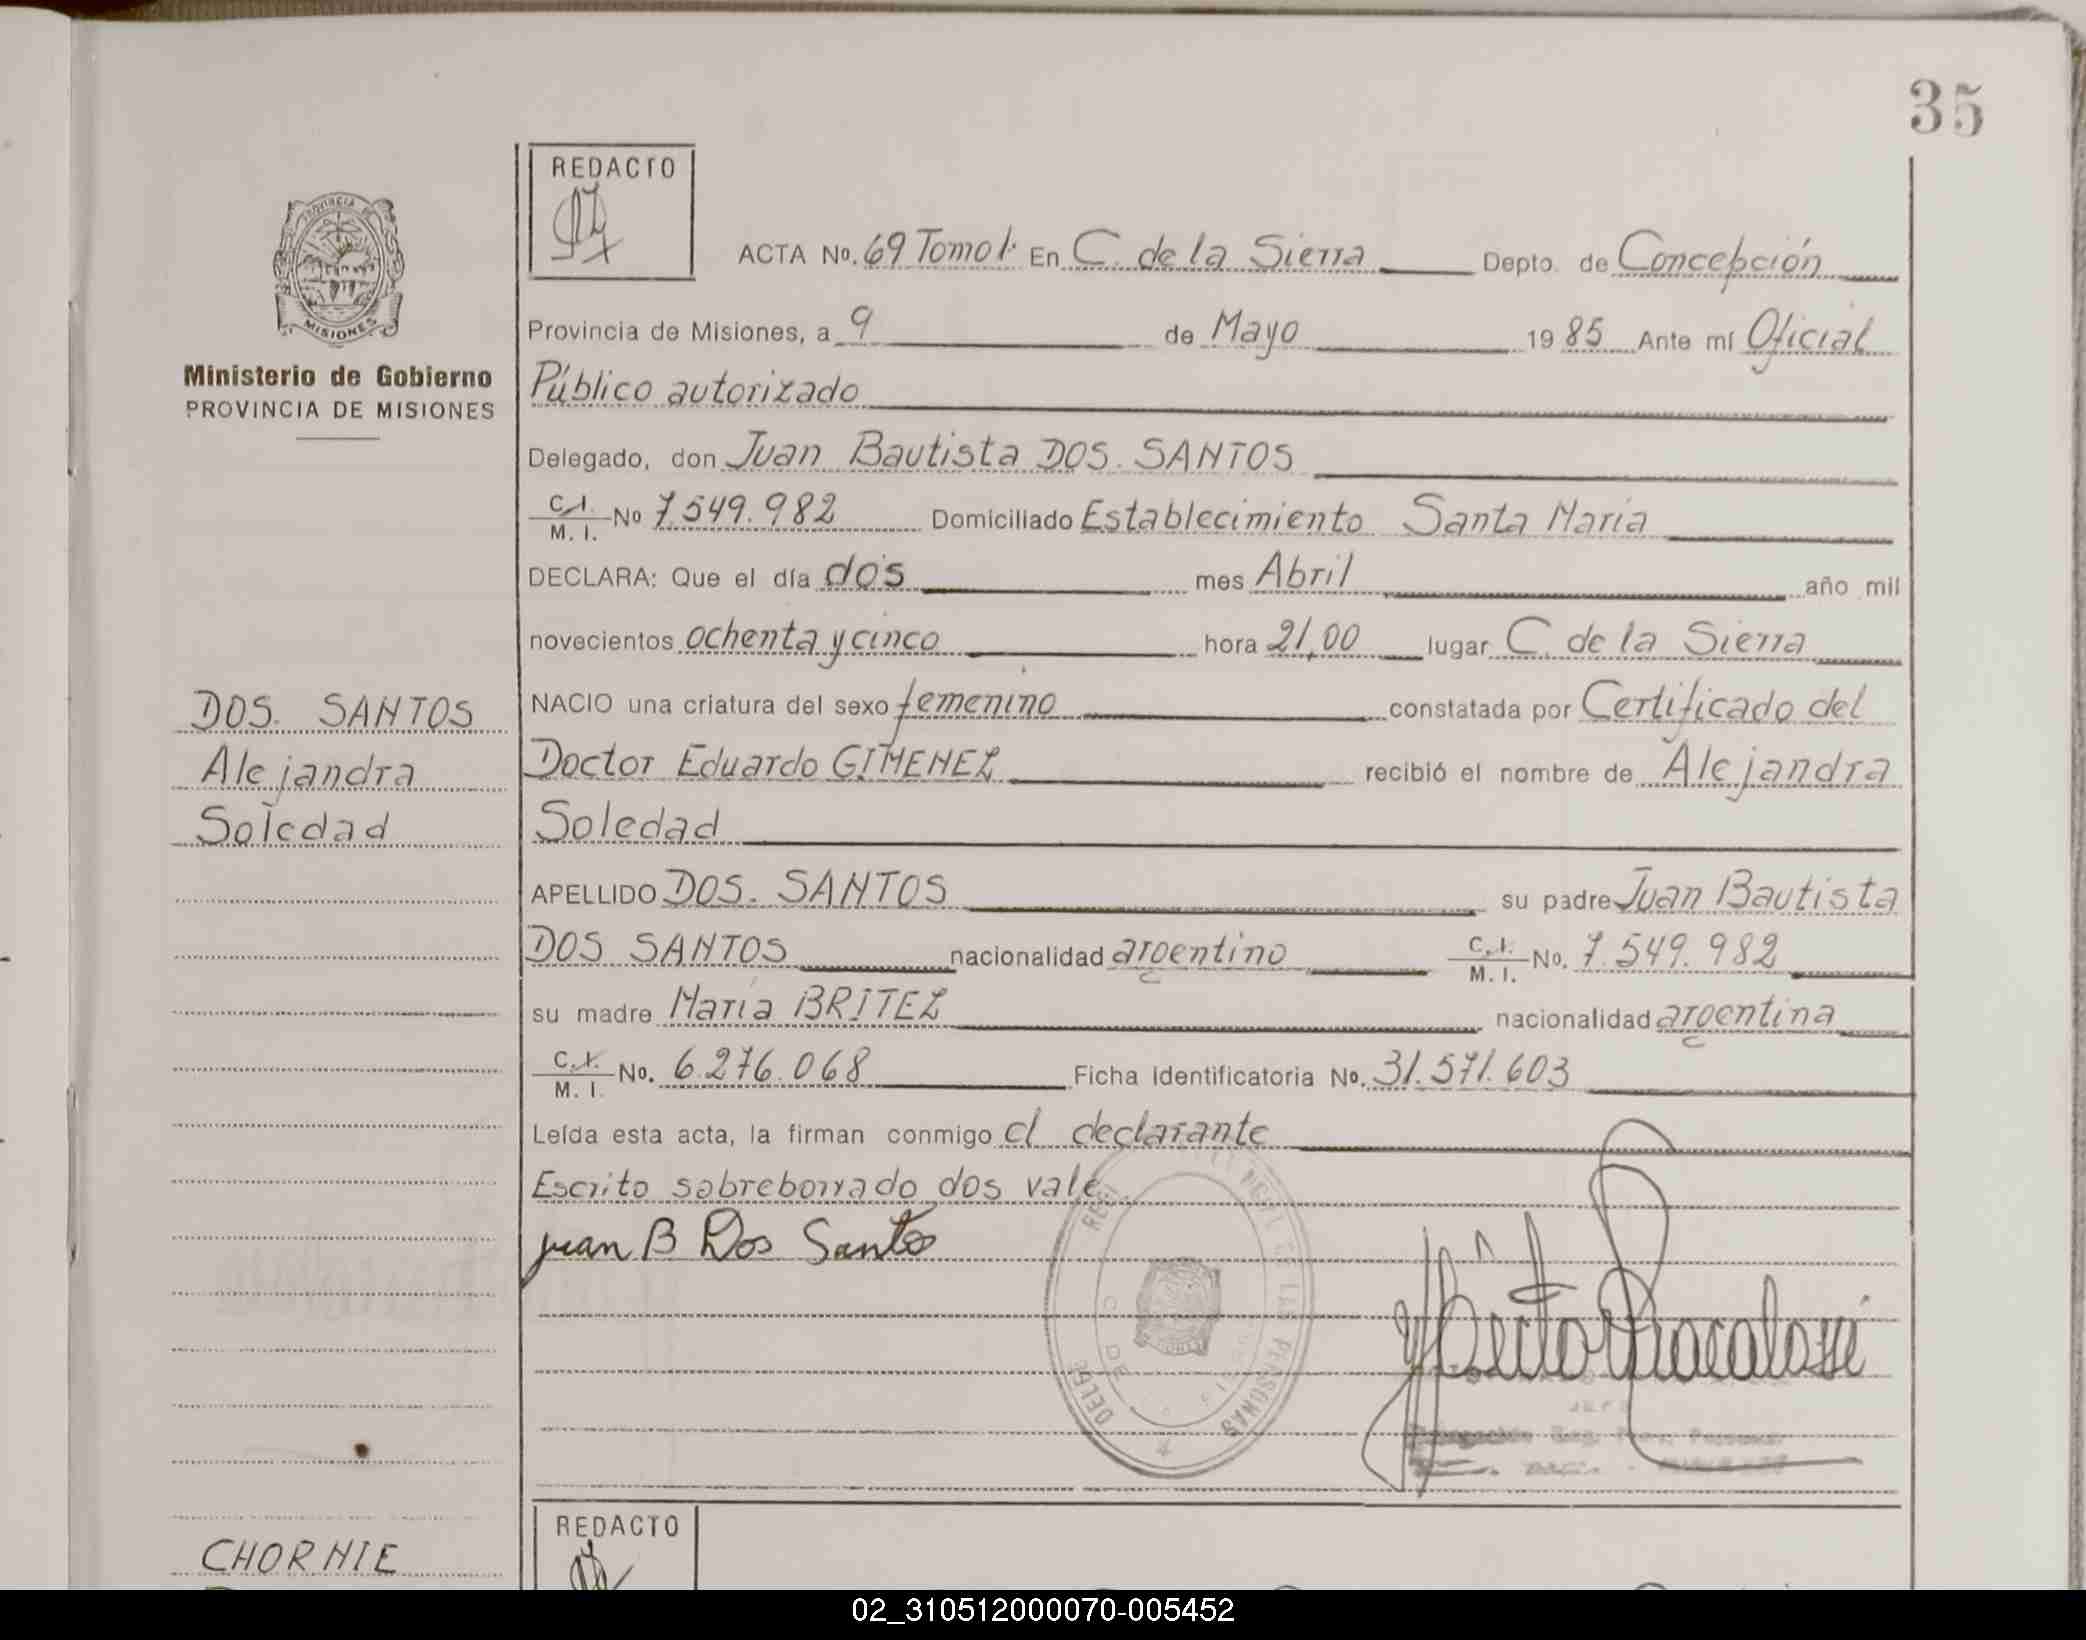 35
REDACTO
ACTA No. 69 Tomo 1. En C. de la Sierra Depto. de Concepción
PROVINCIA DE
MISIONES
Provincia de Misiones, a 9 de Mayo 1985 Ante mí Oficial
Ministerio de Gobierno
PROVINCIA DE MISIONES
Público autorizado
Delegado, don Juan Bautista DOS. SANTOS
C.I.
M. I. No 7.549.982 Domiciliado Establecimiento Santa María
DECLARA: Que el día dos mes Abril año mil
novecientos ochenta y cinco hora 21,00 lugar C. de la Sierra
DOS. SANTOS
Alejandra
Soledad
NACIO una criatura del sexo femenino constatada por Certificado del
Doctor Eduardo GIMENEZ recibió el nombre de Alejandra
Soledad
APELLIDO DOS. SANTOS su padre Juan Bautista
DOS SANTOS nacionalidad argentino C.I.
M. I. No. 7.549.982
su madre María BRITEZ nacionalidad argentina
C.I.
M. I. No. 6.276.068 Ficha Identificatoria No. 31.571.603
Leída esta acta, la firman conmigo el declarante
Escrito sobreborrado dos vale
Juan B Dos Santos
PERSONAS
JEFE
REDACTO
CHORNIE
02_310512000070-005452